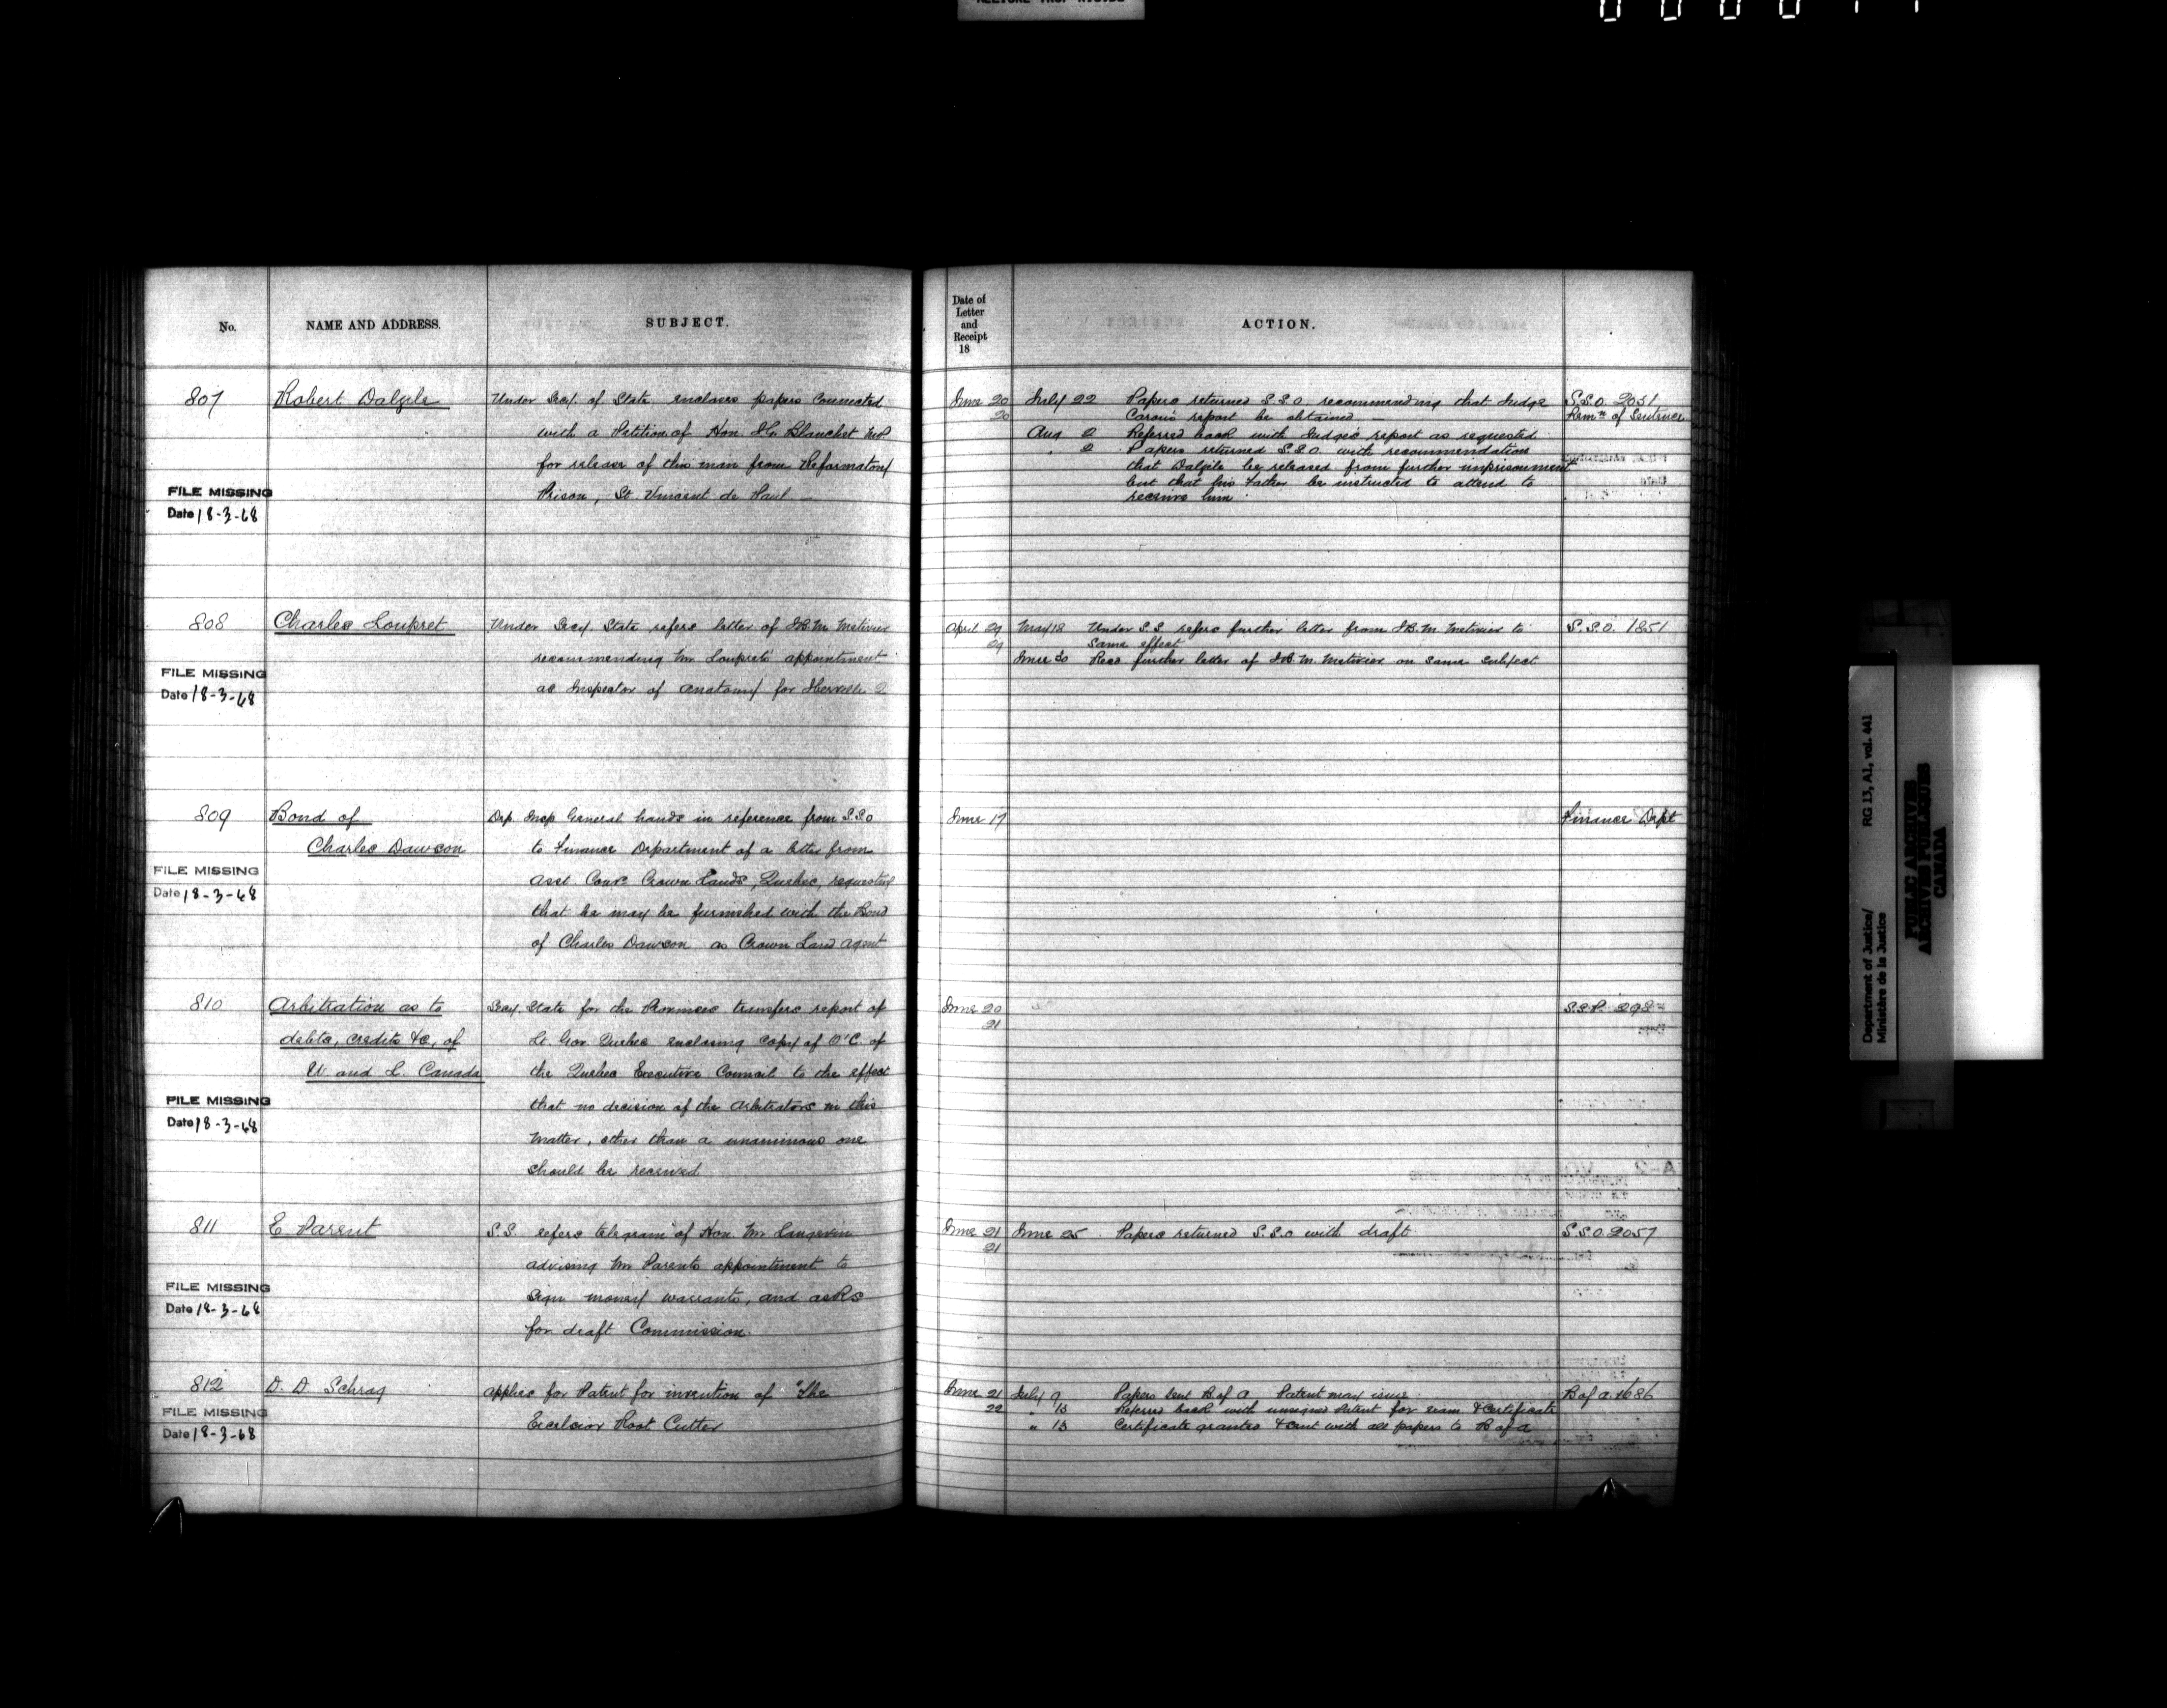 No.
NAME AND ADDRESS.
SUBJECT.
Date of
Letter
and
Receipt
18
ACTION.
807
Robert Dalzile
Under Secy. of State encloses papers connected
with a Petition of Hon. Blanchet MP
for release of this man from Reformatory
Prison, St Vincent de Paul —
FILE MISSING
Date 18-3-68
June 20
20
July 22 Papers returned S.S.O. recommending that Judge
Caron's report be obtained
Aug 2 Referred back with Judge's report as requested
" 2 Papers returned S.S.O. with recommendation
that Dalzile be released from further imprisonment
but that his Father be instructed to attend to
receive him
S.S.O. 2031
Remn of Sentence
808
Charles Loupret
Under Secy. State refers letter of J.B.M. Metivier
recommending Mr Loupret's appointment
as Inspector of Anatomy for Iberville Q
FILE MISSING
Date 18-3-68
April 29
29
May 18 Under S.S. refers further letter from J.B.M. Metivier to
Same effect
June 30 Recd further letter of J.B.M. Metivier on same subject
S.S.O. 1851
809
Bond of
Charles Dawson
Dep. Insp General hands in reference from S.S.O
to Finance Department of a letter from
Asst. Comr. Crown Lands, Quebec, requesting
that he may be furnished with the Bond
of Charles Dawson as Crown Land Agent
FILE MISSING
Date 18-3-68
June 17
Finance Dept
810
Arbitration as to
debts, credits &c, of
U. and L. Canada
Secy. State for the Provinces transfers report of
Lt. Gov. Quebec enclosing copy of O'C. of
the Quebec Executive Council to the effect
that no decision of the Arbitrators in this
matter, other than a unanimous one
should be received
FILE MISSING
Date 18-3-68
June 20
21
S.S.P. 292
811
E Parent
S.S. refers telegram of Hon. Mr Langevin
advising Mr Parents appointment to
sign money warrants, and asks
for draft Commission.
FILE MISSING
Date 18-3-68
June 21
21
June 25 Papers returned S.S.O with draft
S.S.O. 2057
812
D. D. Schrag
Applies for Patent for invention of "The
Excelsior Root Cutter
FILE MISSING
Date 18-3-68
June 21
22
July 9 Papers sent B of A Patent may issue
" 13 Referred back with unsigned Patent for exam & Certificate
" 13 Certificate granted & sent with all papers to B of A
B of A 1686
Department of Justice/
Ministère de la Justice
RG 13, A1, vol. 441
PUBLIC ARCHIVES
ARCHIVES PUBLIQUES
CANADA